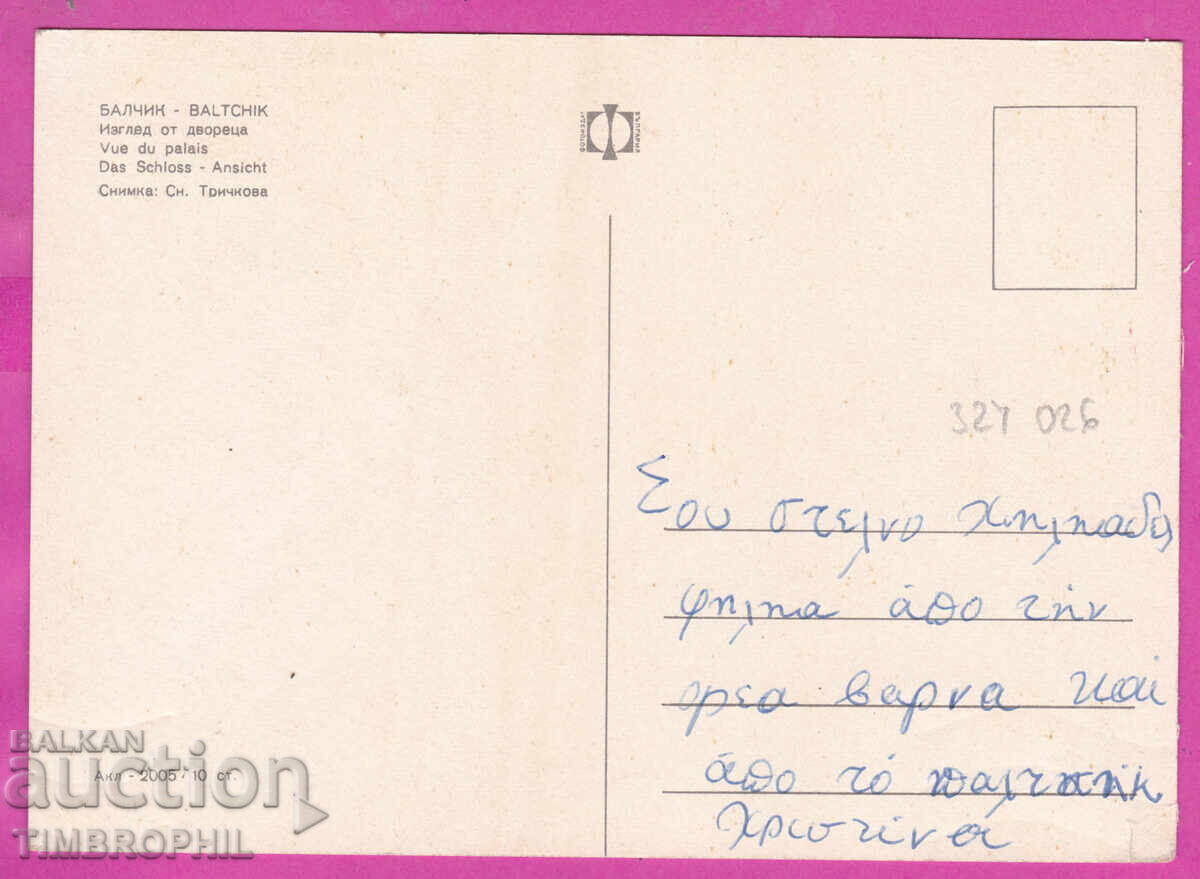 БАЛЧИК - BALTCHIK
Изглед от двореца
Vue du palais
Das Schloss - Ansicht
Снимка: Сн. Тричкова
ФОТОИЗДАТ БЪЛГАРИЯ
327 026
Σου στελνο χηληαδες
φηληα άπο τήν
ορεα βαρνα καί
άπο τό
Χριστίνα
Акл - 2005 / 10 ст.
BALKAN
auction
TIMBROPHIL